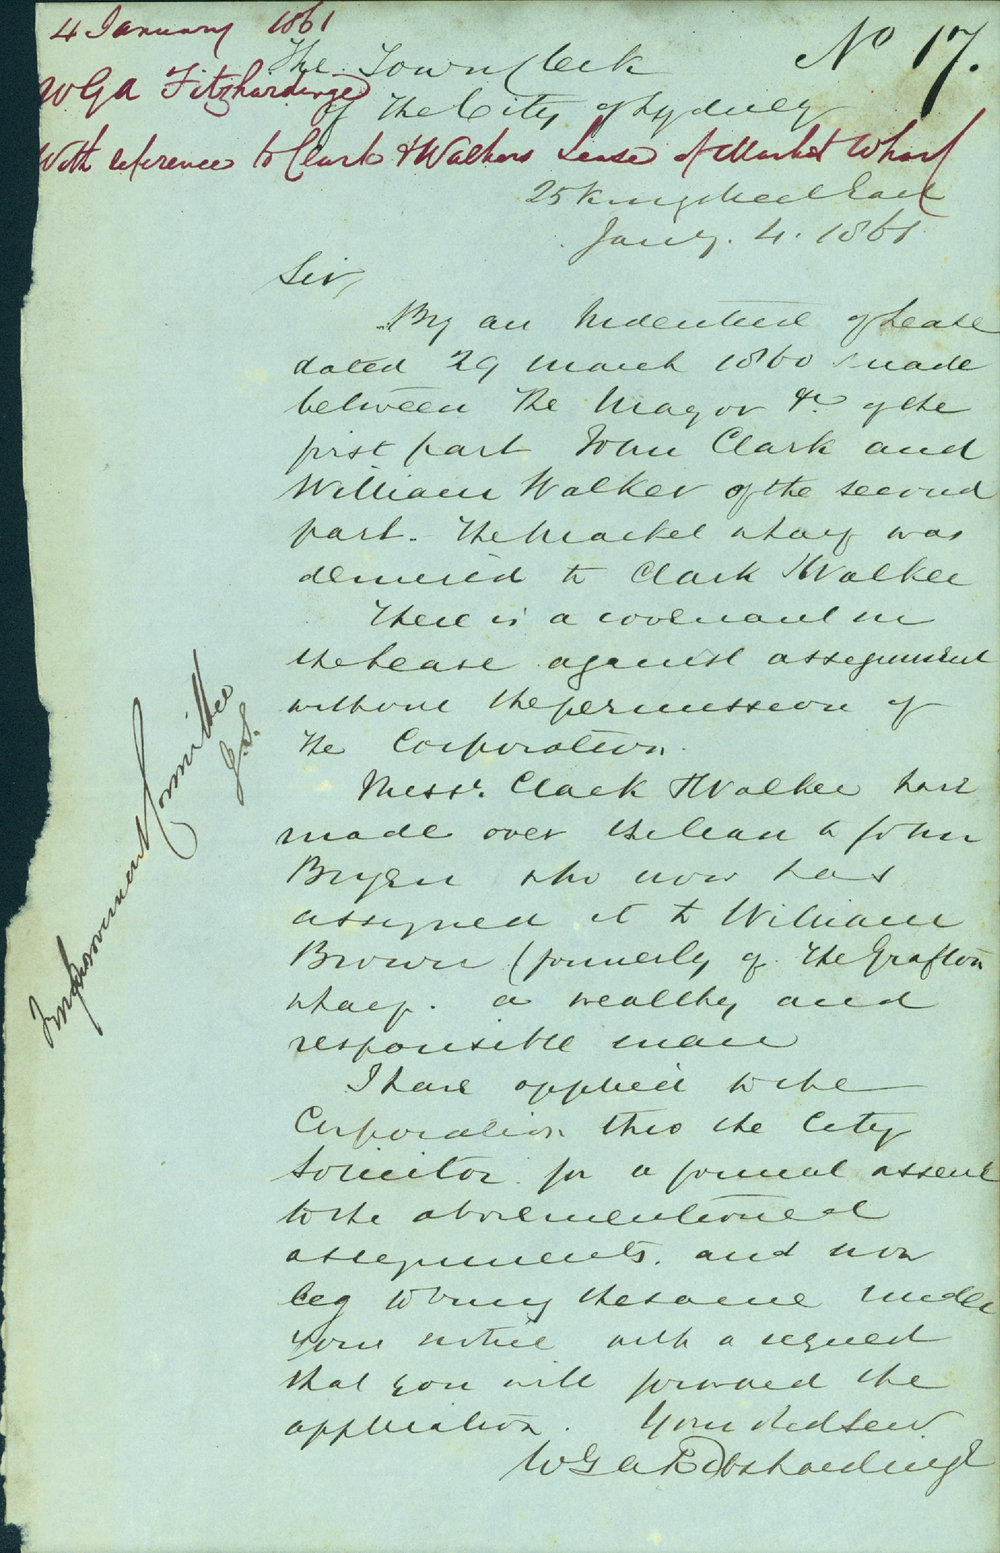 4 January 1861
No 17.
The Town Clerk
WGA Fitzhardinge
of the City of Sydney
With reference to Clark & Walkers Lease of Market Wharf
25 King Street East
Jany. 4. 1861
Sir,
By an Indenture of Lease
dated 29 March 1860 made
between The Mayor &c of the
first part John Clark and
William Walker of the second
part. The Market Wharf was
demised to Clark & Walker
There is a covenant in
the Lease against assignment
without the permission of
the Corporation.
Messrs. Clark & Walker have
made over the lease to John
Bryen who now has
assigned it to William
Brown (formerly of the Grafton
Wharf. a wealthy and
responsible man
I have applied to the
Corporation thro the City
Solicitor for a formal assent
to the abovementioned
assignments. and now
beg to bring the same under
your notice with a request
that you will forward the
application. Your Obed Serv
WGA Fitzhardinge
Improvement Committee
J.S.